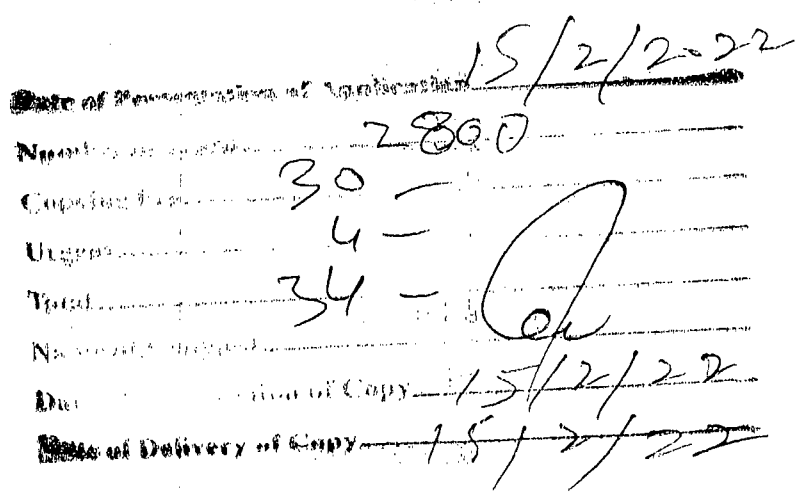 Date of Presentation of Application 15/2/2022
2800
Copying Fee 30 –
Urgent 4 –
Total 34 –
of Copy 15/2/22
Date of Delivery of Copy 15/2/22